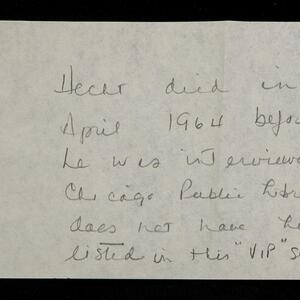 Hecht died in
April 1964 befo
he was interviewe
Chicago Public Libr
does not have h
listed in this "VIP" S